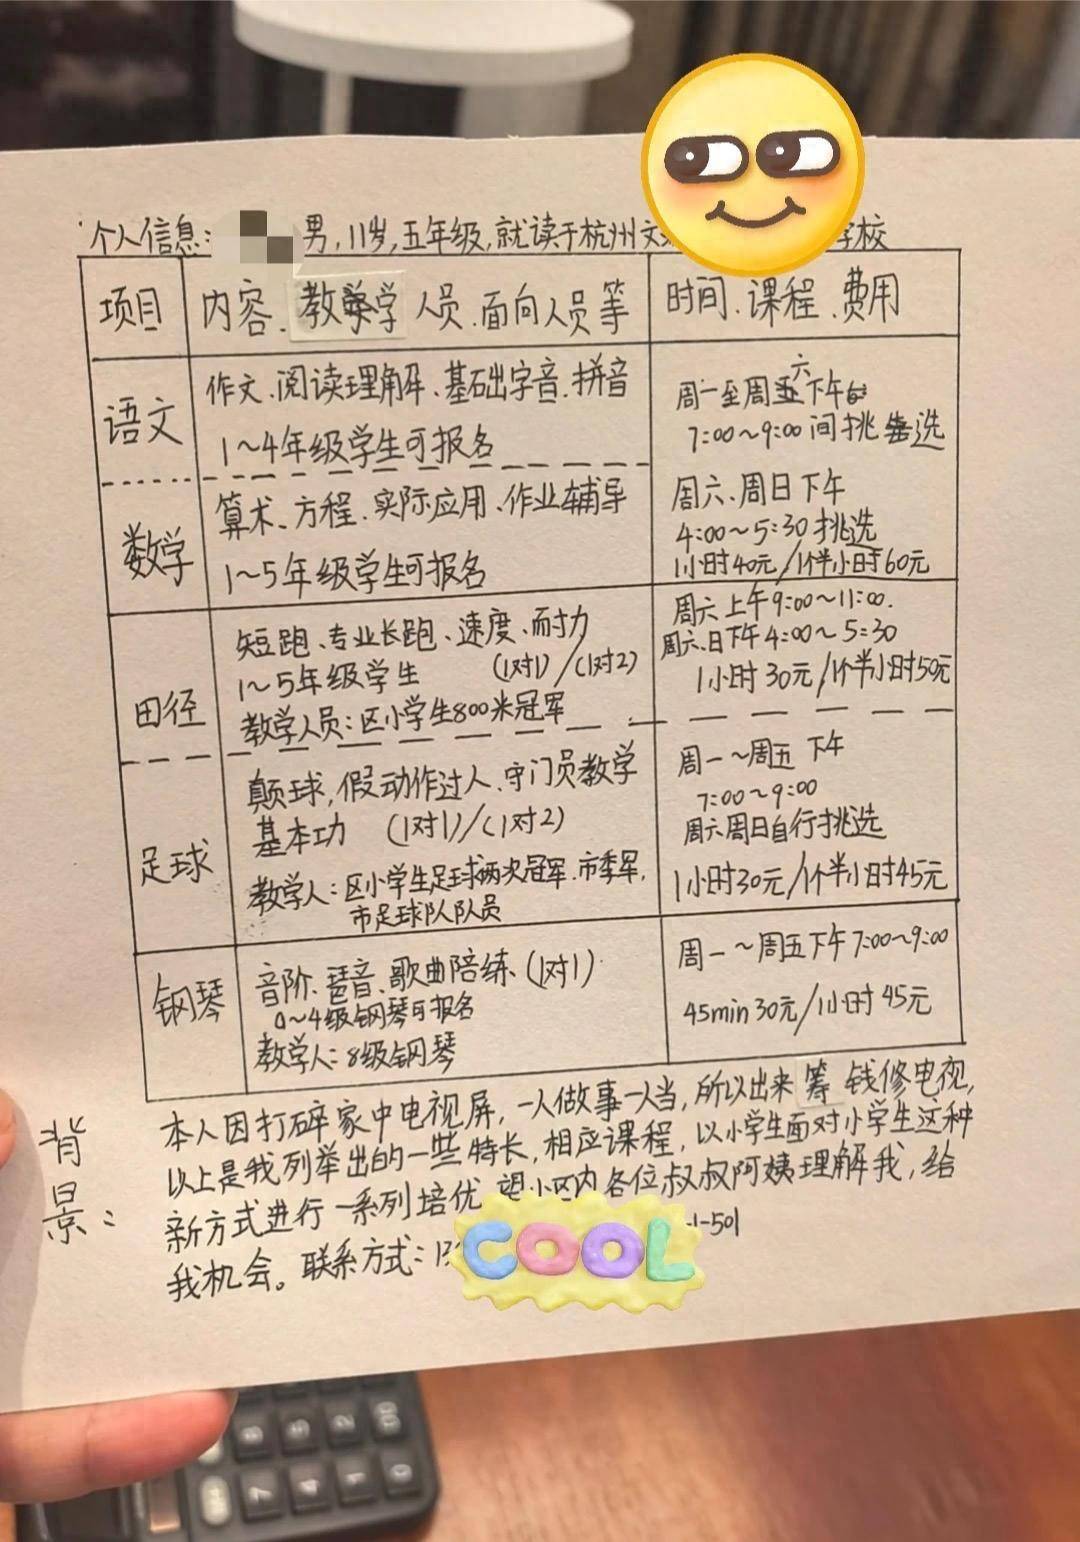 个人信息: 男,11岁,五年级,就读于杭州文 学校
项目 内容、教学人员、面向人员等 时间、课程、费用
语文
作文、阅读理解、基础字音、拼音
1~4年级学生可报名
周一至周六下午
7:00~9:00间挑选
数学
算术、方程、实际应用、作业辅导
1~5年级学生可报名
周六、周日下午
4:00~5:30挑选
1小时40元/1个半小时60元
田径
短跑、专业长跑、速度、耐力
1~5年级学生 (1对1)/(1对2)
教学人员:区小学生800米冠军
周六上午9:00~11:00.
周六、日下午4:00~5:30
1小时30元/1个半小时50元
足球
颠球,假动作过人、守门员教学
基本功 (1对1)/(1对2)
教学人:区小学生足球两次冠军、市季军,
市足球队队员
周一~周五 下午
7:00~9:00
周六周日自行挑选
1小时30元/1个半小时45元
钢琴
音阶、琶音、歌曲陪练、(1对1)
0~4级钢琴可报名
教学人:8级钢琴
周一~周五下午7:00~9:00
45min30元/1小时45元
背景:
本人因打碎家中电视屏,一人做事一人当,所以出来筹钱修电视,
以上是我列举出的一些特长,相应课程,以小学生面对小学生这种
新方式进行一系列培优 望小区内各位叔叔阿姨理解我,给
我机会。联系方式:13 -1-501
COOL